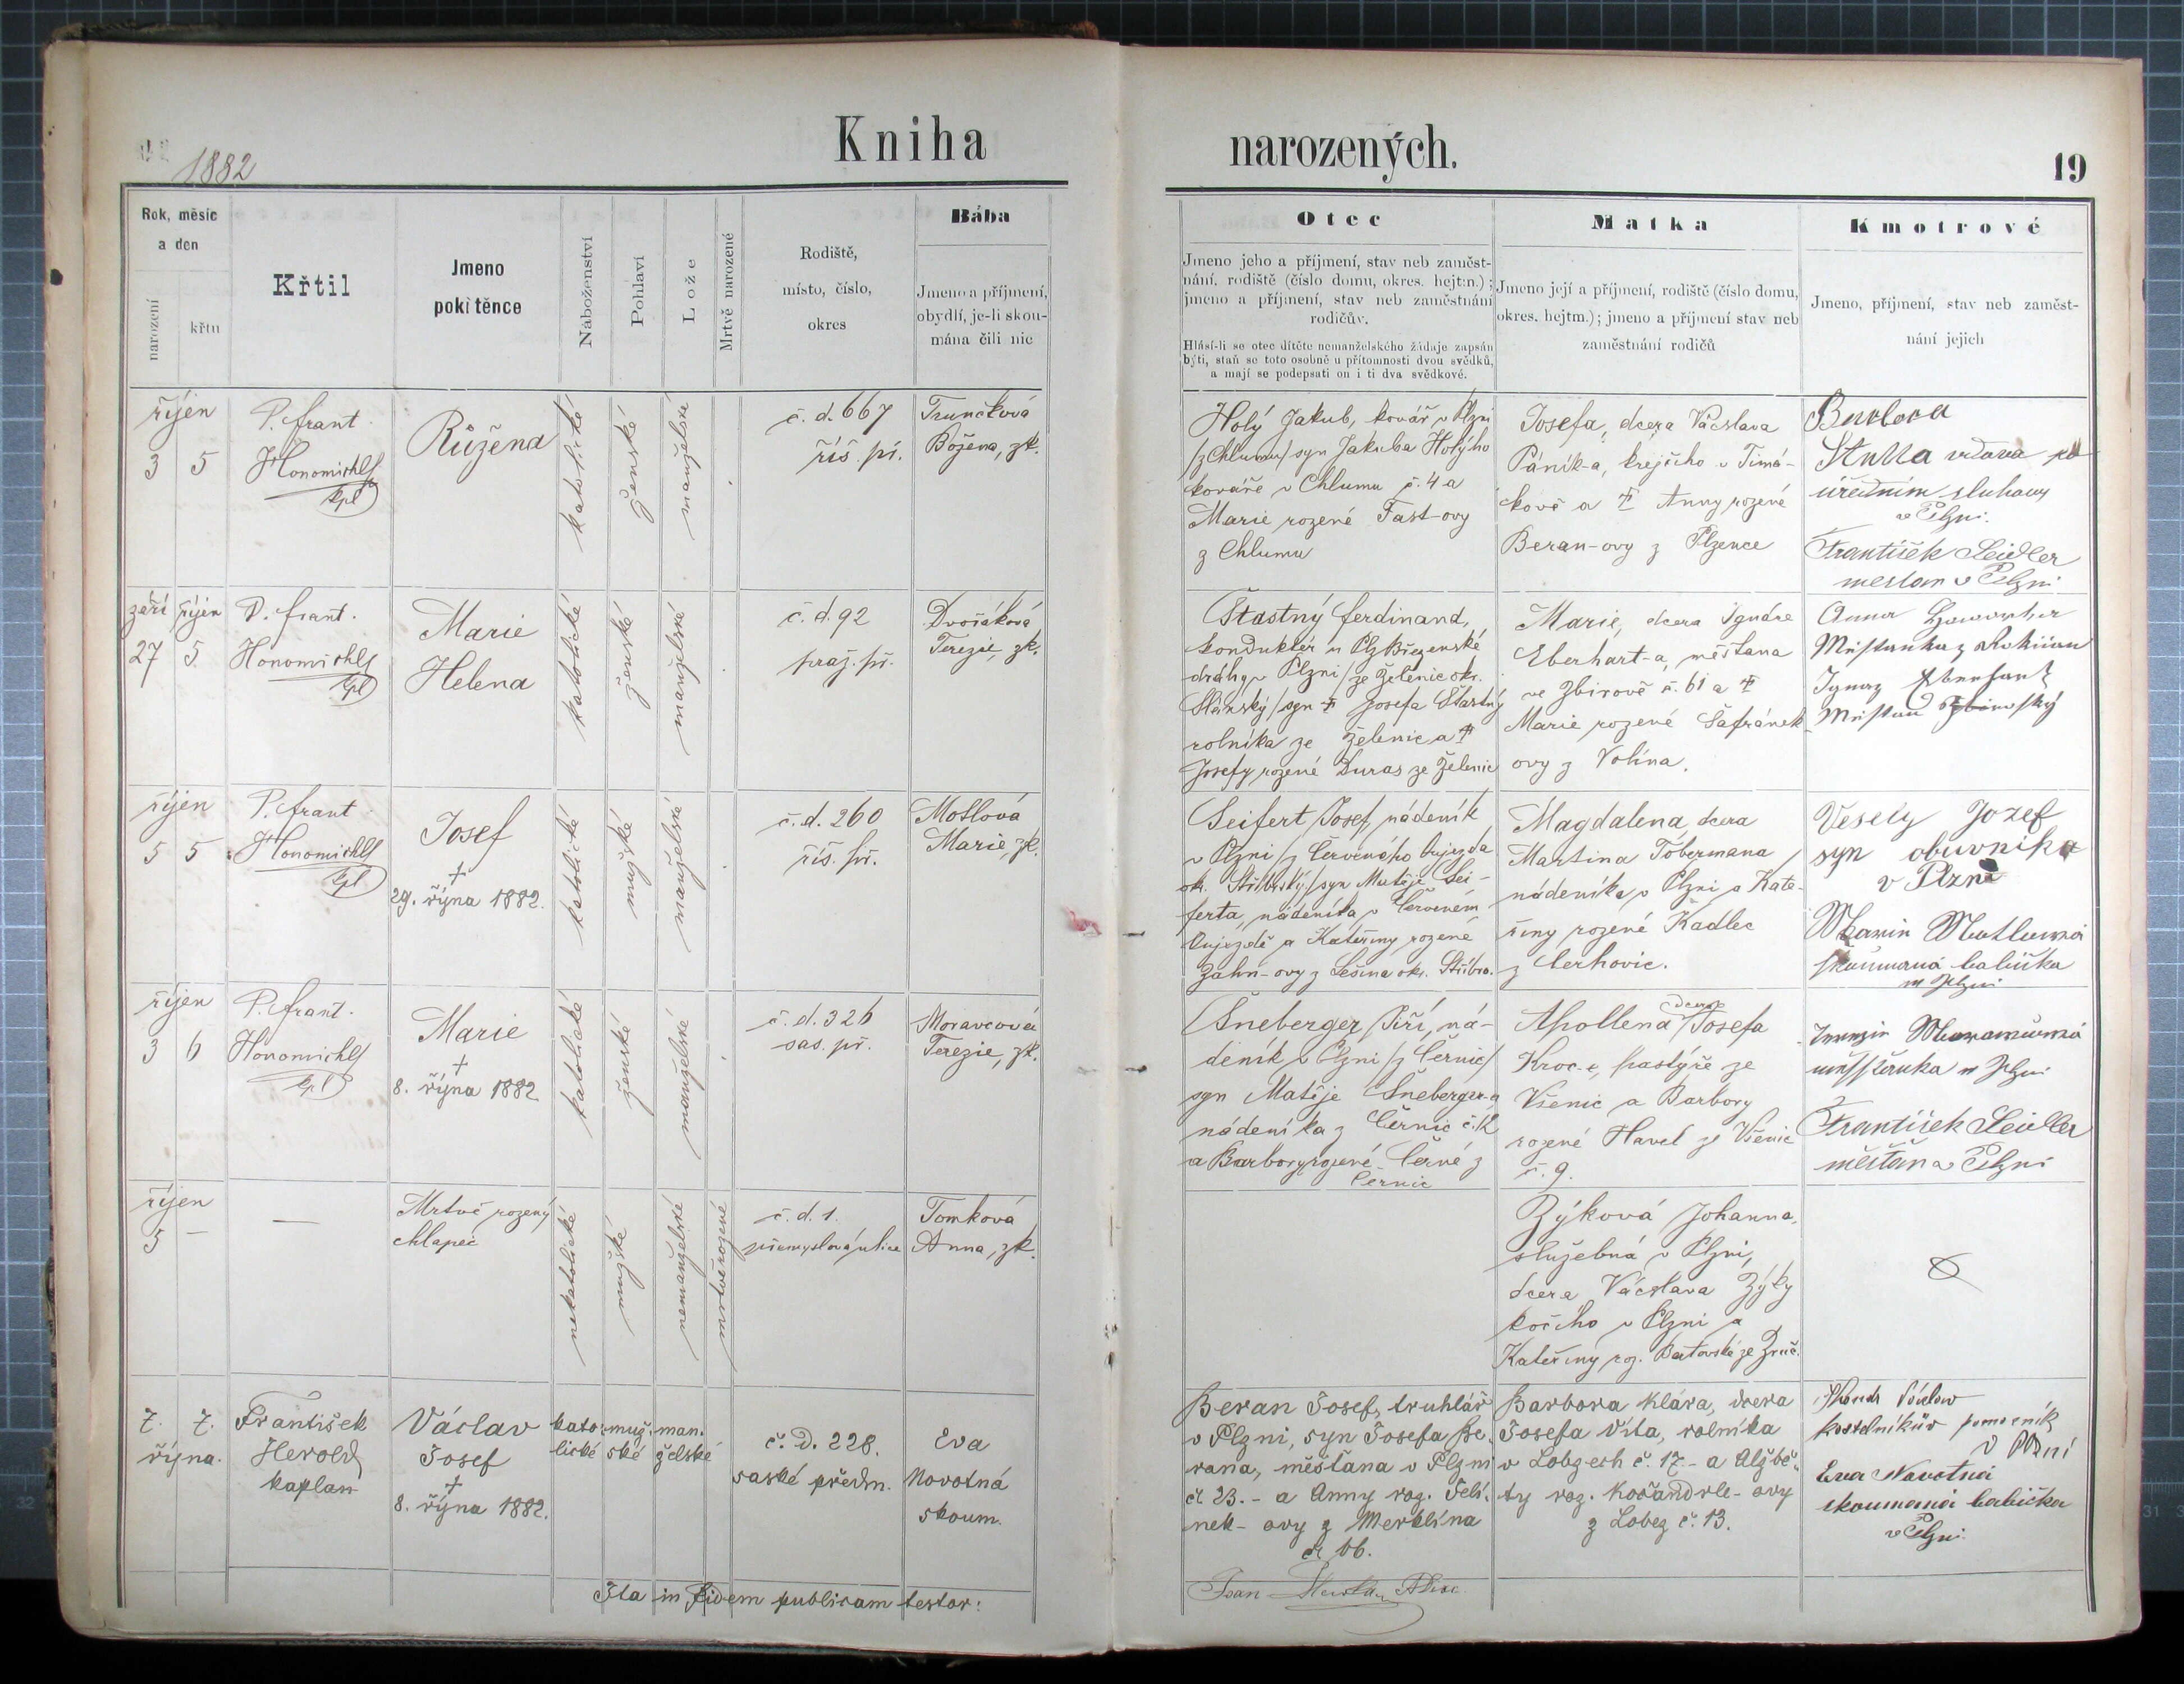 Kniha
narozených.
19
1882
Rok, měsíc
a den
narození
křtu
Křtil
Jmeno
pokřtěnce
Náboženství
Pohlaví
Lože
Mrtvě narozené
Rodiště,
místo, číslo,
okres
Bába
Jmeno a příjmení,
obydlí, je-li skou-
mána čili nic
Otec
Jmeno jeho a příjmení, stav neb zaměst-
nání, rodiště (číslo domu, okres. hejtm.);
jmeno a příjmení, stav neb zaměstnání
rodičův.
Hlásí-li se otec dítěte nemanželského žádaje zapsán
býti, staň se toto osobně u přítomnosti dvou svědků,
a mají se podepsati on i ti dva svědkové.
Matka
Jmeno její a příjmení, rodiště (číslo domu,
okres. hejtm.); jmeno a příjmení stav neb
zaměstnání rodičů
Kmotrové
Jmeno, příjmení, stav neb zaměst-
nání jejich
říjen
3 5
P. Frant.
Honomichl
kpl
Růžena
katolické
ženské
manželské
č. d. 667
říš. př.
Trunčková
Božena, zk.
Holý Jakub, kovář v Plzni
/z Chlumu/ syn Jakuba Holýho
kováře v Chlumu č. 4 a
Marie rozené Fast-ovy
z Chlumu
Josefa, dcera Václava
Páník-a, krejčího v Timá-
kově a † Anny rozené
Beran-ovy z Plzence
Barbora
vdova po
úředním sluhovy
v Plzni.
František Seidler
mešťan v Plzni
září říjen
27 5
P. Frant.
Honomichl
kpl
Marie
Helena
katolické
ženské
manželské
č. d. 92
praž. př.
Dvořáková
Terezie, zk.
Šťastný Ferdinand,
konduktér u Plz. Březenské
dráhy v Plzni /ze Želenic okr.
Slánský/ syn † Josefa Šťastný
rolníka ze Želenic a †
Josefy rozené Duras ze Želenic
Marie, dcera Ignáce
Eberhart-a, měšťana
ve Zbirově č. 61 a †
Marie rozené Šafránek-
ovy z Volína.
Anna
Měšťanka z
Ignaz Eberhart
Měšťan Zbirovský
říjen
5 5
P. Frant.
Honomichl
kpl
Josef
†
29. října 1882.
katolické
mužské
manželské
č. d. 260
říš. př.
Motlová
Marie, zk.
Seifert Josef, nádeník
v Plzni /z Červeného Oujezda
okr. Stříbrský/ syn Matěje Sei-
ferta, nádeníka v Červeném
Oujezdě a Kateřiny rozené
Zahn-ovy z Lešina okr. Stříbro.
Magdalena, dcera
Martina Tobermana
nádeníka v Plzni a Kate-
řiny rozené Kadlec
z Cerhovic.
Vesely Jozef
syn obuvníka
v Plzni
Marie Motlowá
skoumaná babička
w Plzni
říjen
3 6
P. Frant.
Honomichl
kpl
Marie
†
8. října 1882
katolické
ženské
manželské
č. d. 326
sas. př.
Moravcová
Terezie, zk.
Šneberger Jiří, ná-
deník v Plzni /z Černic/
syn Matěje Šneberger-a
nádeníka z Černic č. 12
a Barbory rozené Černé z
Černic
Apollena dcera Josefa
Kroc-e, pastýře ze
Všenic a Barbory
rozené Havel ze Všenic
č. 9.
Terezie Morawcowá
měšťanka w Plzni
František Seidler
měšťan v Plzni
říjen
5 —
—
Mrtvě rozený
chlapec
nekatolické
mužské
nemanželské
mrtvěrozené
č. d. 1.
přemyslová ulice
Tomková
Anna, zk.
Zýková Johanna,
služebná v Plzni,
dcera Václava Zýky
kočího v Plzni a
Kateřiny roz. Bartovské ze Zruč.
7. 7.
října.
František
Herold
kaplan
Václav
Josef
†
8. října 1882.
kato- muž- man-
lické ské želské
č. D. 228.
saské předm.
Eva
Novotná
skoum.
Beran Josef, truhlář
v Plzni, syn Josefa Be-
rana, měšťana v Plzni
č. 23. - a Anny roz. Jelí-
nek- ovy z Merklína
č. 66.
Barbora Klára, dcera
Josefa Víta, rolníka
v Lobzech č. 17. - a Alžbě-
ty roz. Kořandrle- ovy
z Lobez č. 13.
kostelníkův pomocník
v Plzni
Eva Novotná
skoumaná babička
v Plzni.
Ita in fidem publicam testor: